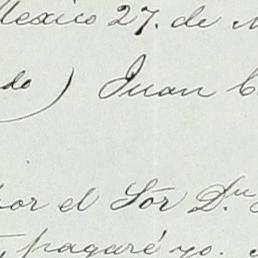 Mexico 27. de
do) Juan
por el Sór Dn
pagaré yo.